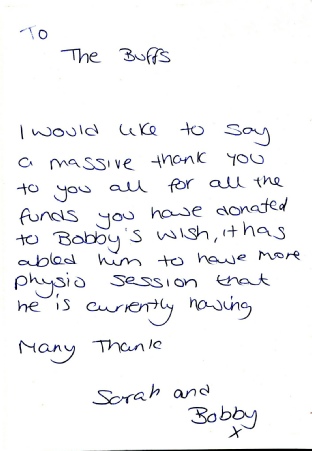 To
The Buffs
I would like to say
a massive thank you
to you all for all the
funds you have donated
to Bobby's wish, it has
abled him to have more
physio session that
he is currently having
Many Thank
Sarah and
Bobby
x